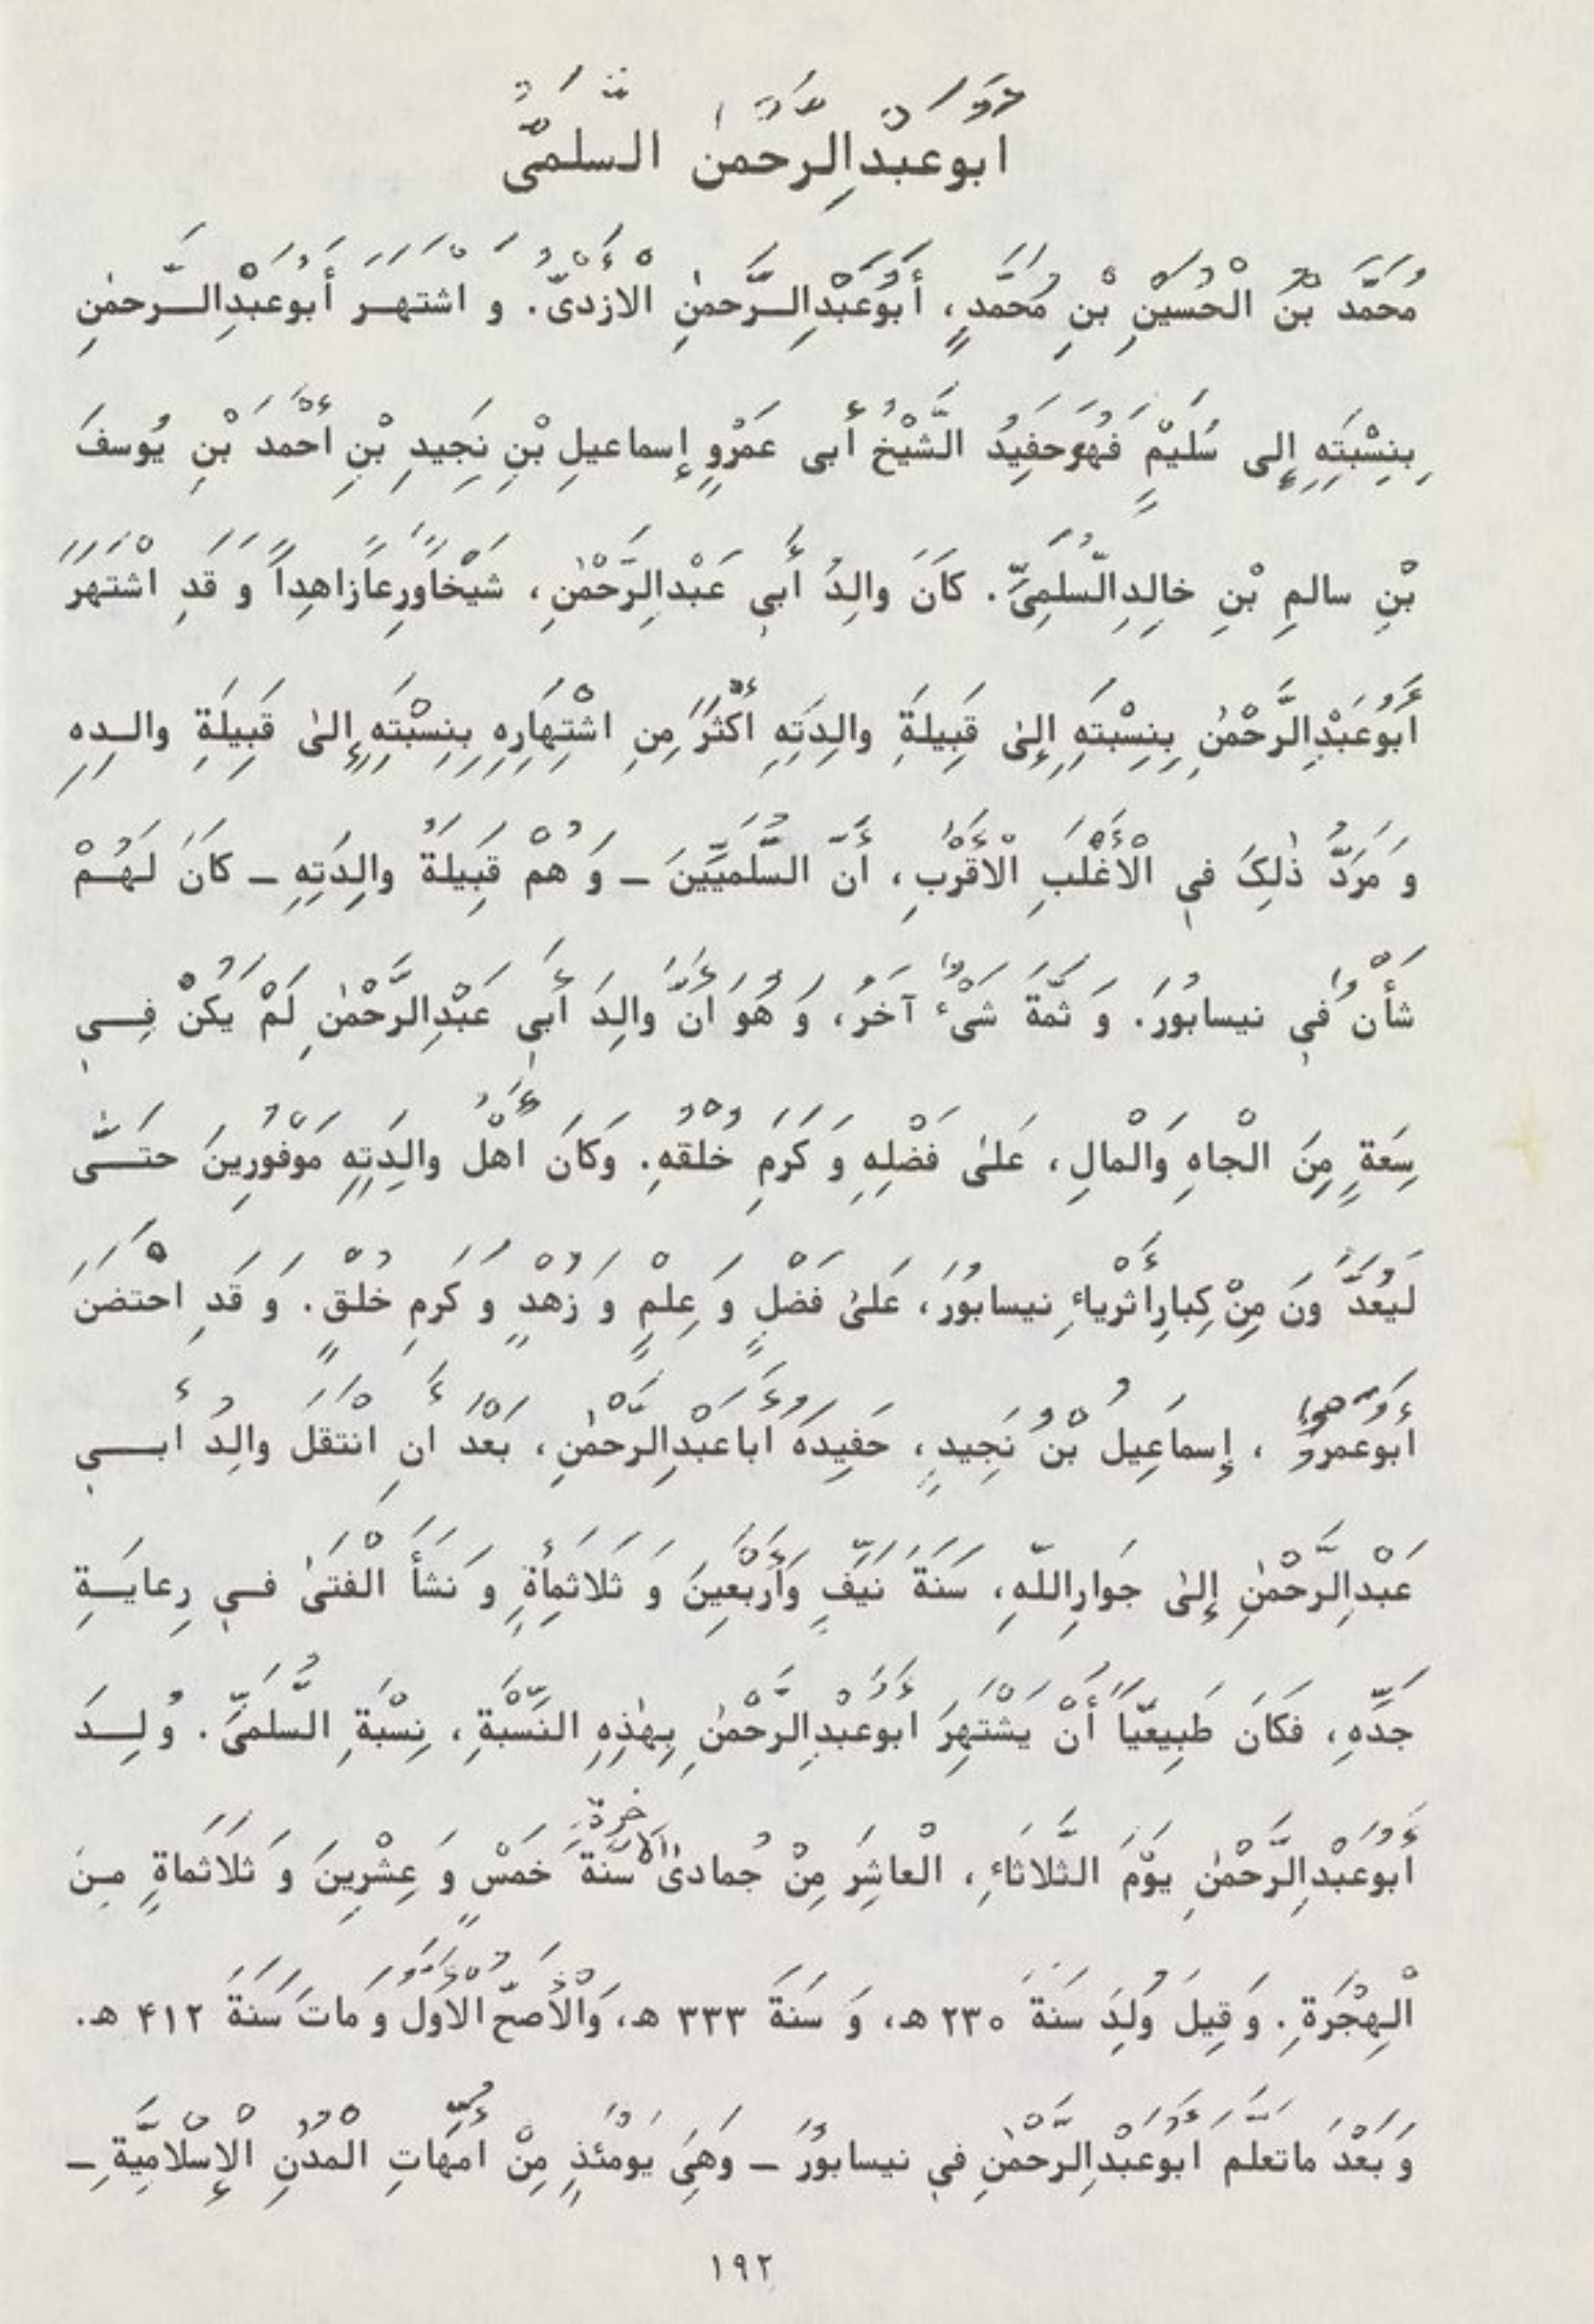 اَبُوعَبْدِالرَّحْمٰنِ السُّلَمِىُّ
مُحَمَّدُ بْنُ الْحُسَيْنِ بْنِ مُحَمَّدٍ، أَبُوعَبْدِالرَّحمٰنِ الْأَزْدىُّ. وَ اشْتَهَرَ أَبُوعَبْدِالرَّحمٰنِ
بِنِسْبَتِهِ إِلى سُلَيْمٍ فَهُوَحَفِيدُ الشَّيْخِ أَبى عَمْرٍو إِسماعيلِ بْنِ نَجِيدِ بْنِ أَحْمَدَ بْنِ يُوسفَ
بْنِ سالمِ بْنِ خالِدِالسُّلَمِىِّ. كَانَ والِدُ أَبي عَبْدِالرَّحْمٰنِ، شَيْخاًوَرِعاًزاهِداً وَ قَدِ اشْتَهَرَ
أَبُوعَبْدِالرَّحْمٰنِ بِنِسْبَتِهِ إِلىٰ قَبِيلَةِ والِدَتِهِ أَكْثَرَ مِنِ اشْتِهَارِهِ بِنِسْبَتِهِ إِلىٰ قَبِيلَةِ والِدِهِ
وَ مَرَدُّ ذٰلِكَ في الْأَغْلَبِ الْأَقْرَبِ، أَنَّ السُّلَمِيِّينَ ـ وَ هُمْ قَبِيلَةُ والِدَتِهِ ـ كانَ لَهُمْ
شَأْنٌ في نيسابُورَ. وَ ثَمَّةَ شَىْءٌ آخَرُ، وَ هُوَ أَنَّ والِدَ أَبي عَبْدِالرَّحْمٰنِ لَمْ يَكُنْ فِي
سِعَةٍ مِنَ الْجاهِ وَالْمالِ، عَلىٰ فَضْلِهِ وَ كَرَمِ خُلْقُهِ. وَكَانَ أَهْلُ والِدَتِهِ مَوْفُورِينَ حتَّى
لَيُعَدُّ ونَ مِنْ كِبارِأَثْرياءِ نيسابُورَ، عَلىٰ فَضْلٍ وَ عِلْمٍ وَ زُهْدٍ وَ كَرَمِ خُلْقٍ. وَ قَدِ احْتَضَنَ
أَبوعَمْرٍو، إِسماعِيلُ بْنُ نَجِيدٍ، حَفِيدَهُ أَباعَبْدِالرَّحْمٰنِ، بَعْدَ أَنِ انْتَقَلَ والِدُ أَبي
عَبْدِالرَّحْمٰنِ إِلىٰ جَوارِاللّهِ، سَنَةَ نَيِّفٍ وَأَرْبَعِينَ وَ ثَلاثَمِأَةٍ وَ نَشَأَ الْفَتىٰ في رِعايَةِ
جَدِّهِ، فَكانَ طَبِيعيّاً أَنْ يَشْتَهِرَ أَبُوعَبْدِالرَّحْمٰنِ بِهٰذِهِ النِّسْبَةِ، نِسْبَةِ السُّلَمِىِّ. وُلِدَ
أَبُوعَبْدِالرَّحْمٰنِ يَوْمَ الثَّلاثاءِ، الْعاشِرَ مِنْ جُمادىٰ الْآخرةِ سَنَةَ خَمْسٍ وَ عِشْرِينَ وَ ثَلاثَماةٍ مِنَ
الْهِجْرَةِ. وَ قِيلَ وُلِدَ سَنَةَ ٢٣٠ هـ، وَ سَنَةَ ٣٣٣ هـ، وَالْأَصَحُّ الْأَوَّلُ وَ ماتَ سَنَةَ ۴۱۲ هـ.
وَ بَعْدَ ماتَعَلَّمَ أَبُوعَبْدِالرَّحْمٰنِ في نيسابُورَ ـ وَهِيَ يَومَئِذٍ مِنْ أُمَّهاتِ الْمُدُنِ الْإِسْلامِيَّةِ ـ
١٩٢